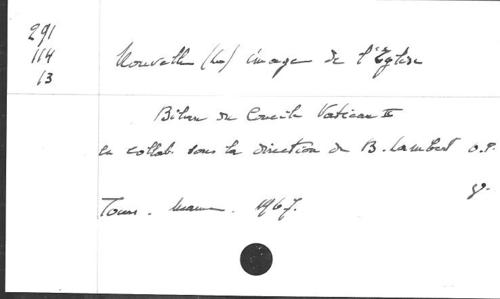 291
114
13
Nouvelle (La) image de l'Eglise
Bilan du Concile Vatican II
en collab. sous la direction de B. Lambert O.P.
Tours. Mame. 1967.